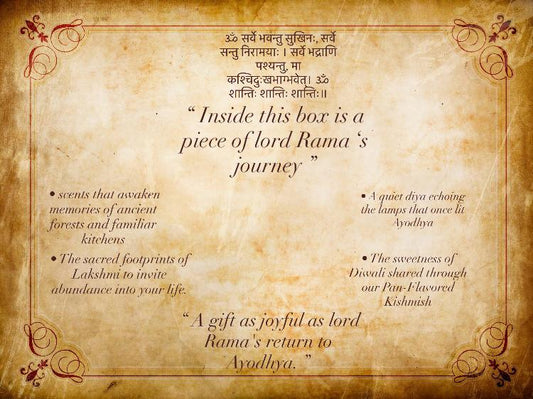 ॐ सर्वे भवन्तु सुखिनः, सर्वे
सन्तु निरामयाः । सर्वे भद्राणि
पश्यन्तु, मा
कश्चिद्दुःखभाग्भवेत्। ॐ
शान्तिः शान्तिः शान्तिः॥
“ Inside this box is a
piece of lord Rama ‘s
journey ”
• scents that awaken
memories of ancient
forests and familiar
kitchens
• The sacred footprints of
Lakshmi to invite
abundance into your life.
• A quiet diya echoing
the lamps that once lit
Ayodhya
• The sweetness of
Diwali shared through
our Pan-Flavored
Kishmish
“ A gift as joyful as lord
Rama's return to
Ayodhya. ”